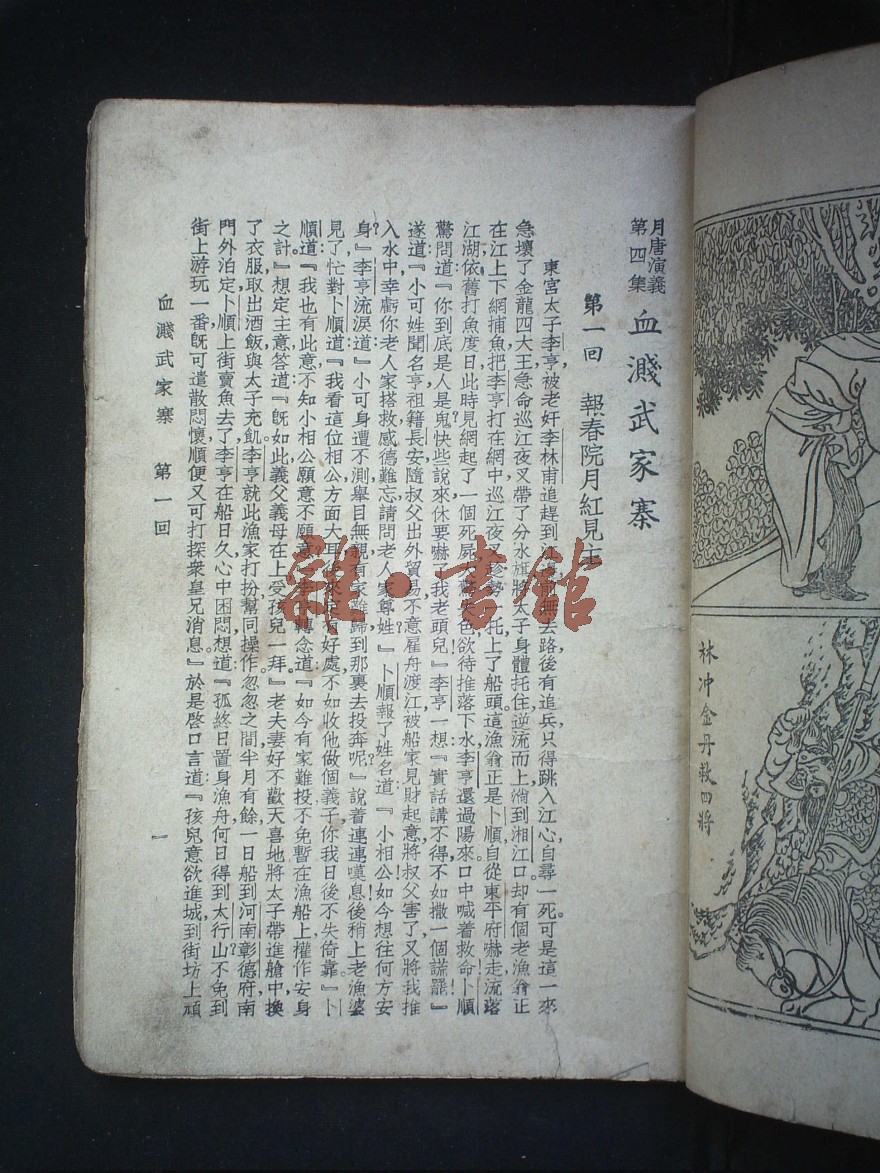 月唐演義
第四集
血濺武家寨
第一回 報春院月紅見主
東宮太子李亨,被老奸李林甫追趕到江,無去路後有追兵,只得跳入江心,自尋一死。可是這一來
急壞了金龍四大王急命巡江夜叉帶了分水旗,將太子身體托住,逆流而上,淌到湘江口却有個老漁翁正
在江上下網捕魚,把李亨打在網中,巡江夜叉托上了船頭。這漁翁正是卜順,自從東平府嚇走,流落
江湖,依舊打魚度日,此時見網起了一個死屍色,欲待推落下水,李亨還過陽來,口中喊着救命!卜順
驚問道:『你到底是人是鬼?快些說來,休要嚇了我老頭兒!』李亨一想:『實話講不得,不如撒一個謊罷』
遂道:『小可姓聞名亨,祖籍長安,隨叔父出外貿易,不意雇舟渡江,被船家見財起意,將叔父害了,又將我推
入水中,幸虧你老人家搭救,感德難忘,請問老人家尊姓。』卜順報了姓名,道:『小相公如今想往何方安
身?』李亨流淚道:『小可身遭不測,舉目無親,有家難歸,到那裏去投奔呢?』說着連連嘆息!後稍上老漁婆
見了,忙對卜順道:『我看這位相公,方面大耳,有好處,不如收他做個義子,你我日後不失倚靠。』卜
順道:『我也有此意,不知小相公願意不願意?』轉念道:『如今有家難投,不免暫在漁船上權作安身
之計。』想定主意,答道:『旣如此,義父義母在上,受孩兒一拜。』老夫妻好不歡天喜地,將太子帶進艙中,換
了衣服,取出酒飯與太子充飢。李亨就此漁家打扮,幫同操作。忽忽之間,半月有餘。一日船到河南彰德府南
門外泊定,卜順上街賣魚去了,李亨在船日久,心中困悶,想道:『孤終日置身漁舟,何日得到太行山?不免到
街上游玩一番,旣可遣散悶懷,順便又可打探衆皇兄消息。』於是啓口言道:『孩兒意欲進城,到街坊上頑
血濺武家寨 第一回
一
林冲金丹救四將
雜·書館